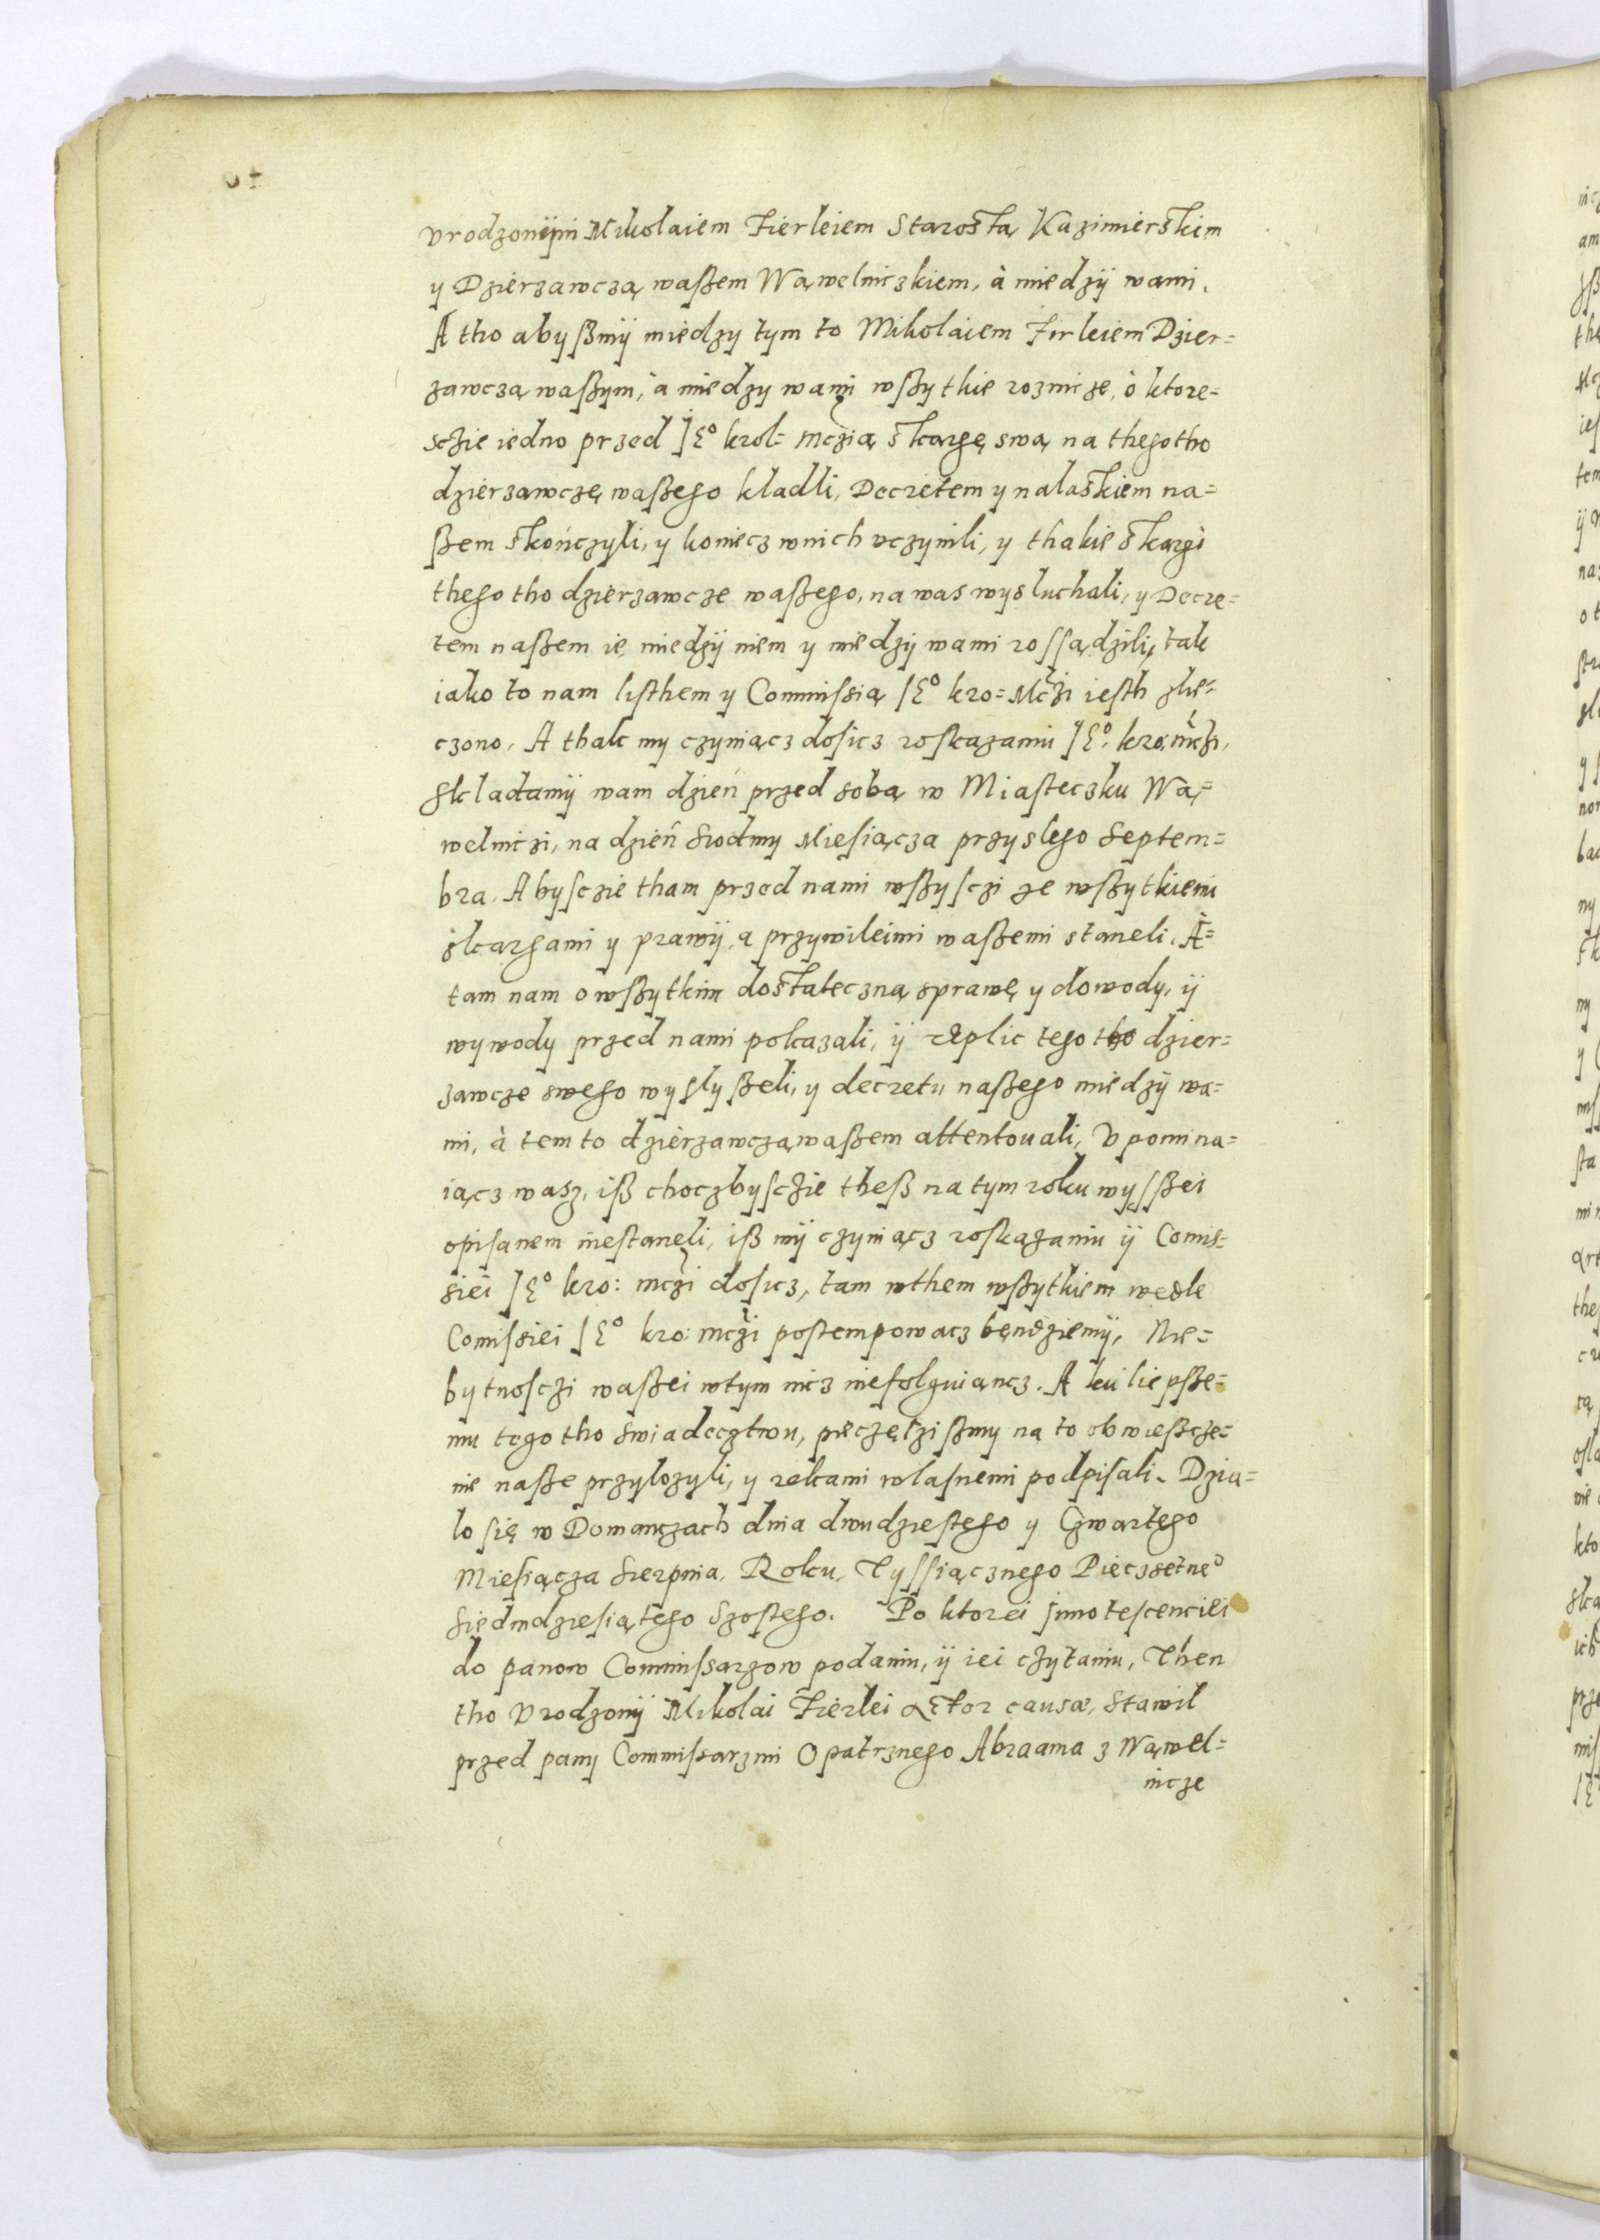 vrodzonÿm Mikolaiem Fierleiem Starostą Kazimierskim
y Dzierzawczą waßem Wąwelniczkiem, à miedzÿ wami.
A tho abyßmÿ miedzy tym to Mikolaiem Firleiem Dzier=
zawczą waßym, à miedzy wami wßytkie roznicze, ò ktore=
sczie iedno przed JEº krol= mczią skargę swą na thegotho
dzierzawczę waßego kladli, Decretem y nalaskiem na=
ßem skończyli, y koniecz wnich vczynili, y thakie skargi
thego tho dzierzawcze waßego, na was wysluchali, y Decre=
tem naßem ie miedzÿ niem y miedzÿ wami rossądzili, tak
iako to nam listhem y Commissią JEº kro= Mczi iesth zle=
czono. A thak my czyniącz dosicz roskazaniu JEº kro: mczi,
skladamÿ wam dzień przed sobą w Miasteczku Wą=
welniczi, na dzień siodmy Miesiącza przyslego Septem=
bra. Abysczie tham przed nami wßysczi ze wßytkiemi
skargami y prawÿ, a przywileimi waßemi staneli. A=
tam nam o wßytkim dostateczną sprawę y dowody, ÿ
wywody przed nami pokazali, ÿ replic tego tho dzier=
zawcze swego wyslyßeli, y decretu naßego miedzÿ wa=
mi, à tem to dzierzawczą waßem attentouali, Vpomina=
iącz wasz, iß choczbysczie theß na tym roku wyssßei
opisanem niestaneli, iß mÿ czyniącz roskazaniu ÿ Comis=
siei JEº kro: mczi dosicz, tam wthem wßytkiem wedle
Comissiei JEº kro: mczi postempowacz będziemÿ, Nie=
bytnosczi waßei wtym nicz niefolguiąncz. A ku liepße=
mu tego tho swiadecztwu, pieczęczißmy na to obwiesżcze=
nie naße przylozyli, y rekami wlasnemi podpisali. Dzia=
lo się w Domanczach dnia dwudziestego y Czwartego
Miesiącza Sierpnia, Roku, Tyssiącznego Pieczsetneº
Siedmdziesiątego Szostego. Po ktorei innotescenciei
do panow Commissarzow podaniu, ÿ iei czytaniu, Then
tho Vrodzonÿ Mikolai Fierlei Actor causæ, Stawil
przed pany Commissarzmi Opatrznego Abraama z Wąwel=
nicze